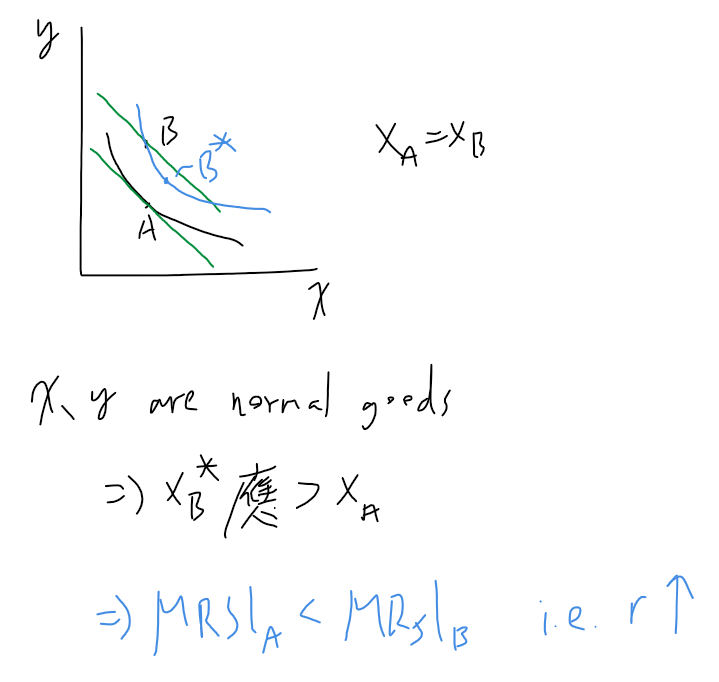 y
B
B*
x_A = x_B
A
x
x、y are normal goods
⇒ x_B* 應 > x_A
⇒ MRS|_A < MRS|_B i.e. r ↑